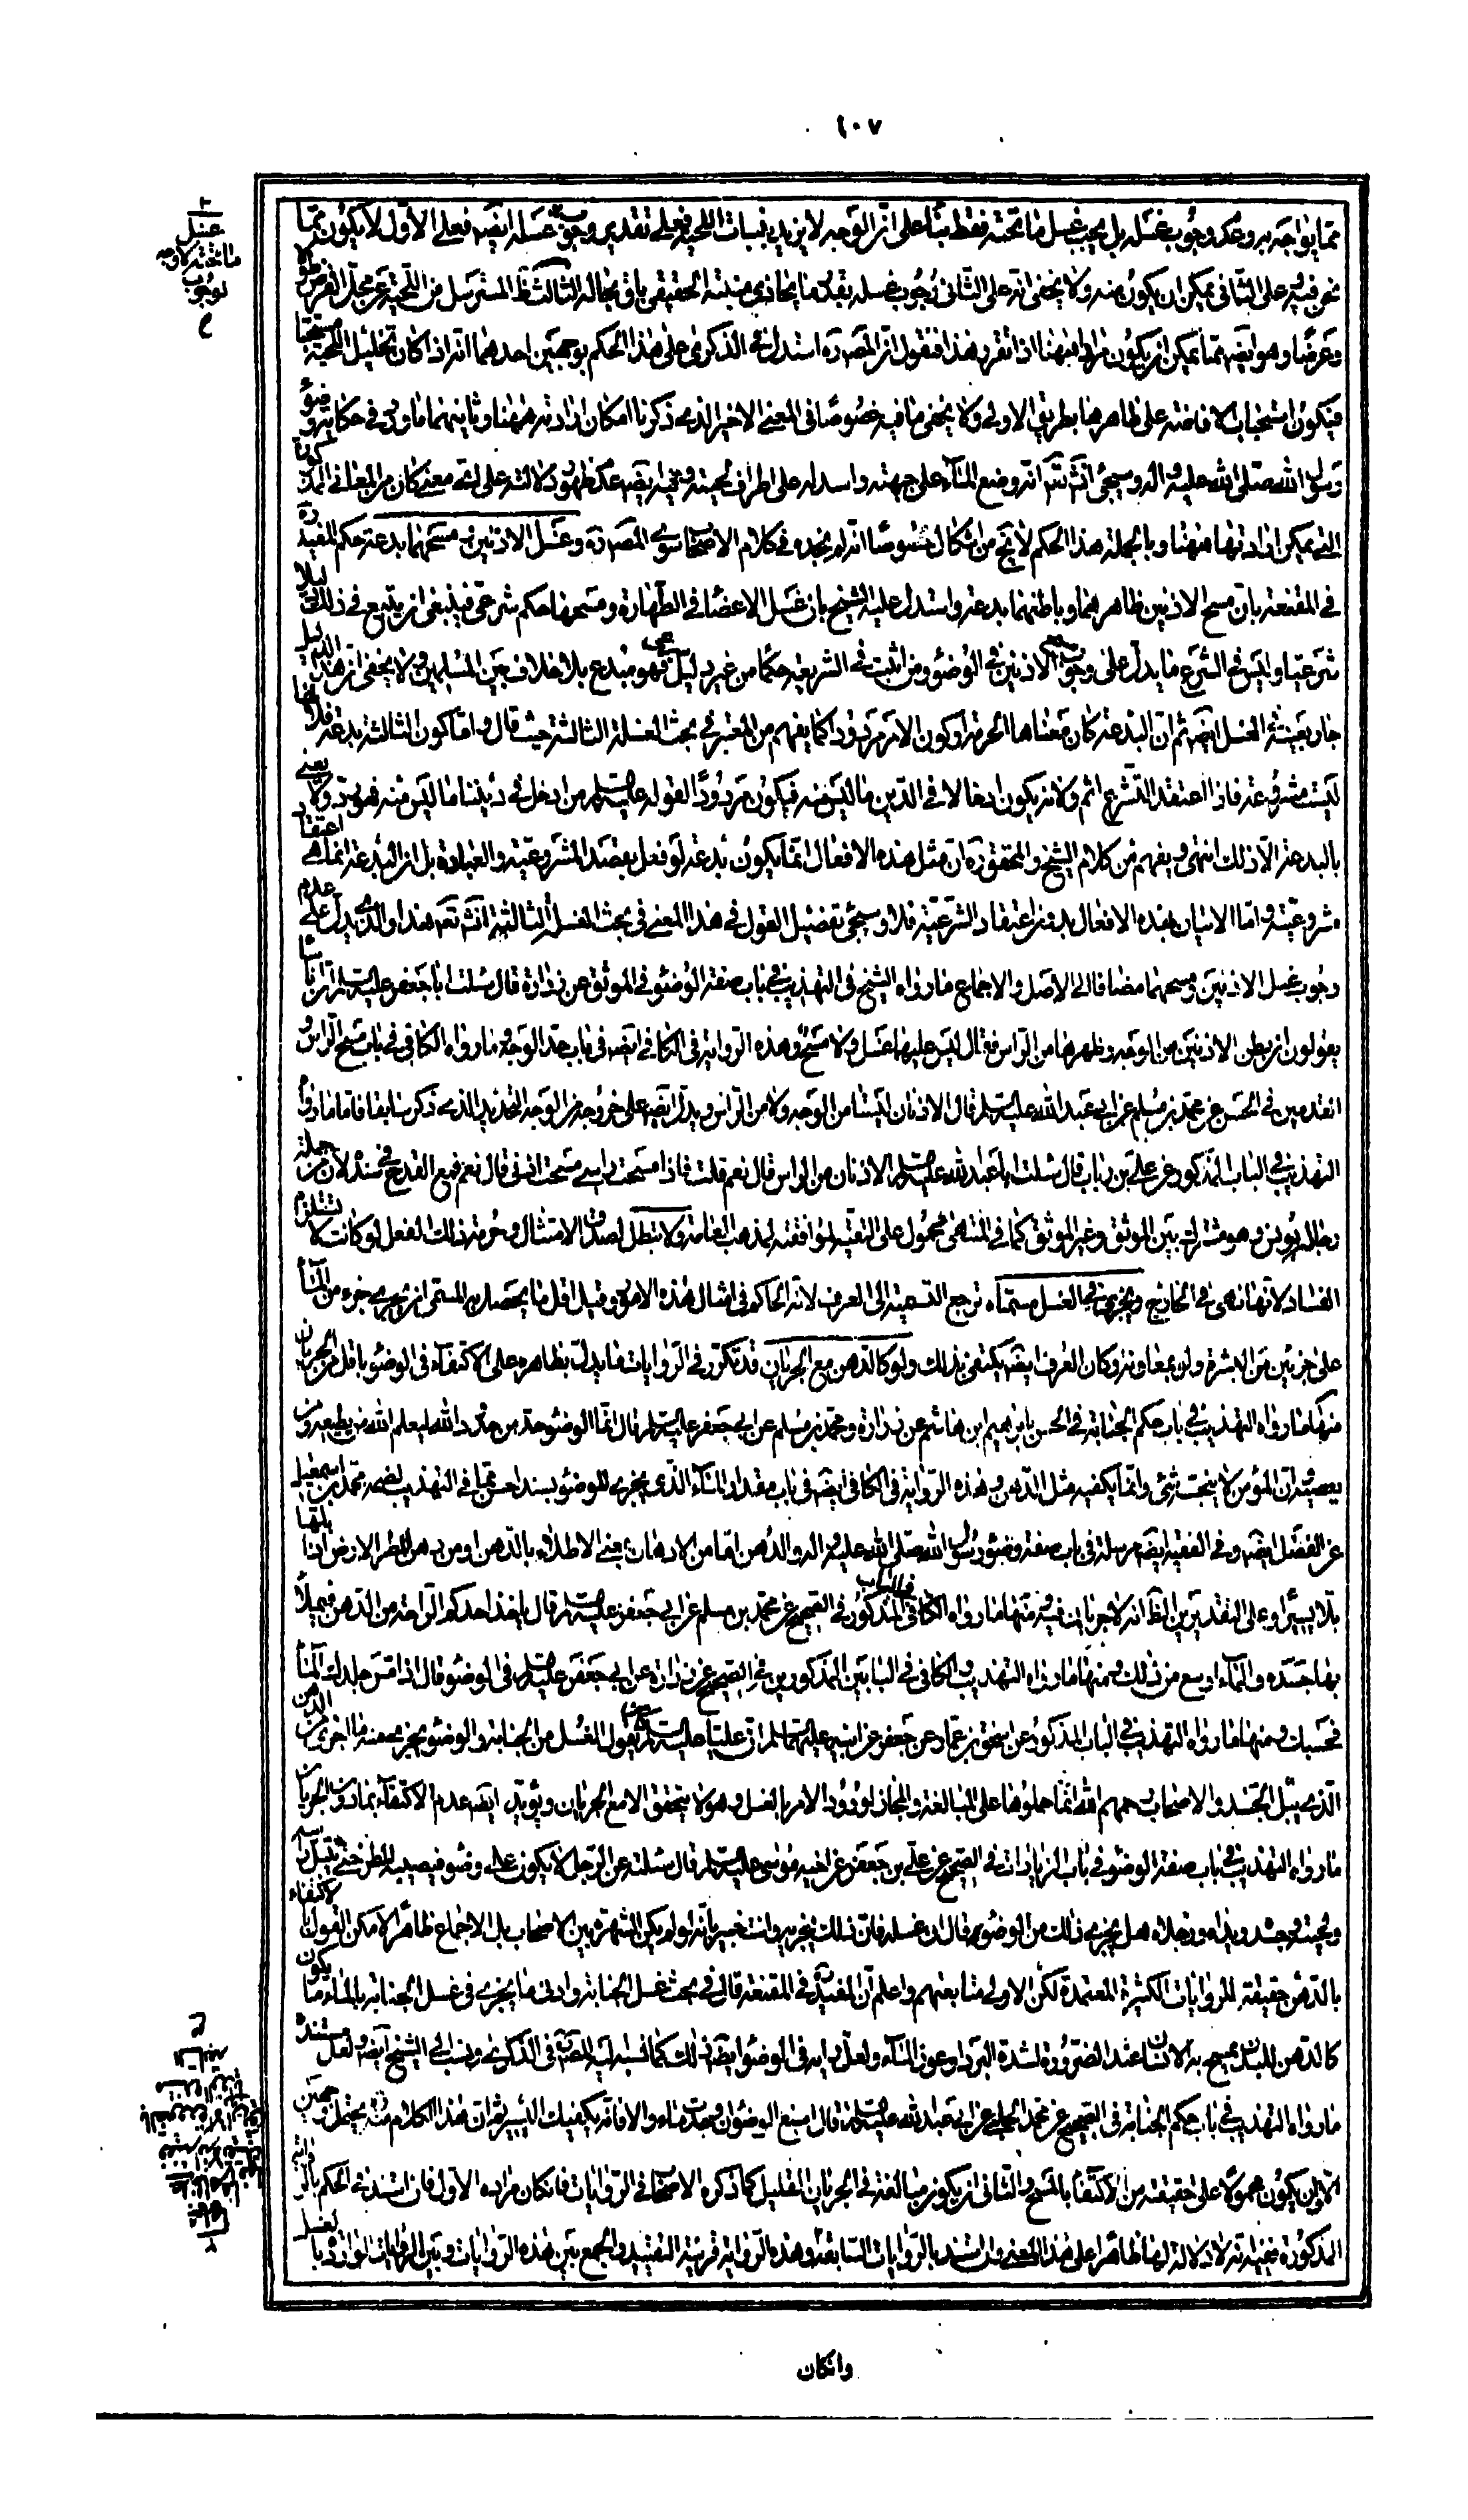 ١٠٧
مما يواجه به وعدم وجوب غسله بل يجب غسل ما تحته فقط بناء على ان الوجه لا يزيد بنبات اللحية فعلى تقدير وجوب غسله ايضه فعلى الاول لا يكون مما
نحن فيه وعلى الثاني يمكن ان يكون منه ولا يخفى انه على الثاني وجوب غسله بقدر ما يحاذي منبته الحقيقي باق بحاله الثالث المسترسل من اللحية عن محل الفرض طولا
وعرضا وهو ايضه مما يمكن ان يكون مرادا هيهنا اذا تقرر هذا فنقول ان المصه ره استدل في الذكرى على هذا الحكم بوجهين احدهما انه اذا كان تخليل اللحية مستحبا
فيكون استحباب الافاضة على ظاهرها بطريق الاولى ولا يخفى ما فيه خصوصا في المعنى الاخير الذي ذكرنا امكان ارادته هيهنا وثانيهما ما روى في حكاية وضوء
رسول الله صلى الله عليه واله وسيجئ انش تع انه وضع الماء على جبهته واسدله على اطراف لحيته وفيه ايضه عدم ظهور دلالته على اي معنى كان من المعاني المذكورة
التي يمكن ارادتها هيهنا وبالجملة هذا الحكم لا يخ من اشكال خصوصا انه لم نجده في كلام الاصحاب سوى المصه ره وغسل الاذنين ومسحهما بدعة حكم المفيد ره
في المقنعة بان مسح الاذنين ظاهرهما وباطنهما بدعة واستدل عليه الشيخ بان غسل الاعضاء في الطهارة ومسحها حكم شرعي فينبغي ان يتبع في ذلك دليلا
شرعيا وليس في الشرع ما يدل على وجوب مسح الاذنين في الوضوء ومن اثبت في الشريعة حكما من غير دليل شرعي فهو مبدع بلا خلاف بين المسلمين ولا يخفى ان هذا الدليل
جار بعينه في الغسل ايضه ثم ان البدعة كان معناها الحرمة او كون الامر مردودا كما يفهم من المعتبر في بحث الغسلة الثالثة حيث قال واما كون الثالثة بدعة فلانها
ليست مشروعة فاذا اعتقد التشريع اثم ولانه يكون ادخالا في الدين ما ليس منه فيكون مردودا لقوله عليه السلم من ادخل في ديننا ما ليس منه فهو رد ولا نعني
بالبدعة الا ذلك انتهى ويفهم من كلام الشيخ والمحقق ره ان مثل هذه الافعال انما يكون بدعة لو فعل بقصد المشروعية والعبادة بل ان البدعة انما هي اعتقاد
مشروعيته واما الاتيان بهذه الافعال بدون اعتقاد الشرعية فلا وسيجئ تفصيل القول في هذا المعنى في بحث الغسلة الثالثة انش تع هذا والذي يدل على عدم
وجوب غسل الاذنين ومسحهما مضافا الى الاصل والاجماع ما رواه الشيخ في التهذيب في باب صفة الوضوء في الموثق عن زرارة قال سئلت ابا جعفر عليه السلم ان اناسا
يقولون ان بطن الاذنين من الوجه وظهرهما من الراس فقال ليس عليهما غسل ولا مسح وهذه الرواية في الكافي ايضه في باب حد الوجه وما رواه الكافي في باب مسح الراس و
القدمين في الحسن عن محمد بن مسلم عن ابي عبد الله عليه السلم قال الاذنان ليستا من الوجه ولا من الراس ويدل ايضه على خروجه من الوجه التحديد الذي ذكر سابقا فاما ما رواه
التهذيب في الباب المذكور عن علي بن رئاب قال سئلت ابا عبد الله عليه السلم الاذنان من الراس قال نعم قلت فاذا مسحت راسي مسحت اذني قال نعم فمع القدح في سنده لان من جملة
رجاله يونس وهو مشترك بين الموثق وغير الموثق كما في المنتهى محمول على التقية لموافقته لمذهب العامة ولا تبطل لصدق الامتثال وحرمة ذلك الفعل لو كانت لا تستلزم
الفساد لانها نهى في الخارج ويجزي في الغسل مسماه ترجع التسمية الى العرف لانه الحاكم في امثال هذه الامور وقيل اقل ما يحصل به المسمى ان يجري جزء من الماء
على جزئين من البشرة ولو بمعاون وكان العرف ايضه يكتفي بذلك ولو كالدهن مع الجريان قد تكرر في الروايات ما يدل بظاهره على الاكتفاء في الوضوء باقل من الجريان
منها ما رواه التهذيب في باب حكم الجنابة في الحسن بابراهيم ابن هاشم عن زرارة ومحمد بن مسلم عن ابي جعفر عليه السلم قال انما الوضوء حد من حدود الله ليعلم الله من يطيعه ومن
يعصيه وان المؤمن لا ينجسه شئ وانما يكفيه مثل الدهن وهذه الرواية في الكافي ايضه في باب مقدار الماء الذي يجزي للوضوء بسند احسن مما في التهذيب لضمه محمد بن اسمعيل
عن الفضل ايضه وفي الفقيه ايضه مرسلة في باب صفة وضوء رسول الله صلى الله عليه واله والدهن اما من الادهان يعني الاطلاء بالدهن او من دهن المطر الارض اذا بلها
بلا يسيرا وعلى التقديرين الظ انه لا جريان فيه ومنها ما رواه الكافي في الباب المذكور في الصحيح عن محمد بن مسلم عن ابي جعفر عليه السلم قال ياخذ احدكم الراحة من الدهن فيملأ
بها جسده والماء اوسع من ذلك ومنها ما رواه التهذيب والكافي في البابين المذكورين في الصحيح عن زرارة عن ابي جعفر عليه السلم في الوضوء قال اذا مس جلدك الماء
فحسبك ومنها ما رواه التهذيب في الباب المذكور عن اسحق بن عمار عن جعفر عن ابيه عليهما السلم ان عليا عليه السلم كان يقول الغسل من الجنابة والوضوء يجزي منه ما اجزى من الدهن
الذي يبل الجسد والاصحاب رحمهم الله انما حملوها على المبالغة والمجاز لورود الامر بالغسل وهو لا يتحقق الا مع الجريان ويؤيد ايضه عدم الاكتفاء بما دون الجريان
ما رواه التهذيب في باب صفة الوضوء في باب الزيادات في الصحيح عن علي بن جعفر عن اخيه موسى عليه السلم قال سئلته عن الرجل لا يكون على وضوء فيصيبه المطر حتى يبتل راسه
ولحيته وجسده ويداه ورجلاه هل يجزيه ذلك من الوضوء قال ان غسله فان ذلك يجزيه وانت خبير بانه لو لم يكن الشهرة بين الاصحاب بل الاجماع ظاهرا لامكن القول بالاكتفاء
بالدهن حقيقة للروايات الكثيرة المعتمدة لكن الاولى متابعتهم واعلم ان المفيد ره في المقنعة قال في بحث غسل الجنابة وادنى ما يجزي في غسل الجنابة بالماء ما يكون
كالدهن للبدن يمسح به الانسان عند الضرورة لشدة البرد او عوز الماء ولعل رايه في الوضوء ايضه ذلك كما نسبه اليه المصه في الذكرى ونسب الى الشيخ ايضه ولعل مستنده
ما رواه التهذيب في باب حكم الجنابة في الصحيح عن محمد الحلبي عن ابي عبد الله عليه السلم قال اسبغ الوضوء ان وجدت ماء والا فانه يكفيك اليسير ثم ان هذا الكلام منه يحتمل وجهين
الاول ان يكون محمولا على حقيقته من الاكتفاء بالمسح والثاني ان يكون مبالغة في الجريان القليل كما ذكره الاصحاب في الروايات فان كان مراده الاول فان استند في الحكم بالرواية
المذكورة ففيه انه لا دلالة لها ظاهرا على هذا المعنى وان استند بالروايات السابقة وهذه الرواية قرينة التقييد والجمع بين هذه الروايات وبين الروايات الواردة بالغسل
وان كان
غسل
ما تحته لا وجه
لوجوب